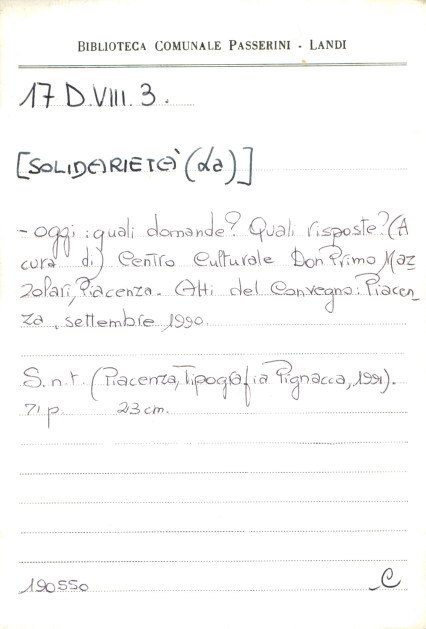 BIBLIOTECA COMUNALE PASSERINI - LANDI
17 D.VIII.3.
[SOLIDARIETÀ (La)]
- oggi : quali domande? Quali risposte? (A
cura di) Centro Culturale Don Primo Maz=
zolari, Piacenza. Atti del Convegno: Piacen_
za, settembre 1990.
S.n.t. (Piacenza, Tipografia Pignacca, 1991).
71 p. 23 cm.
190550 C